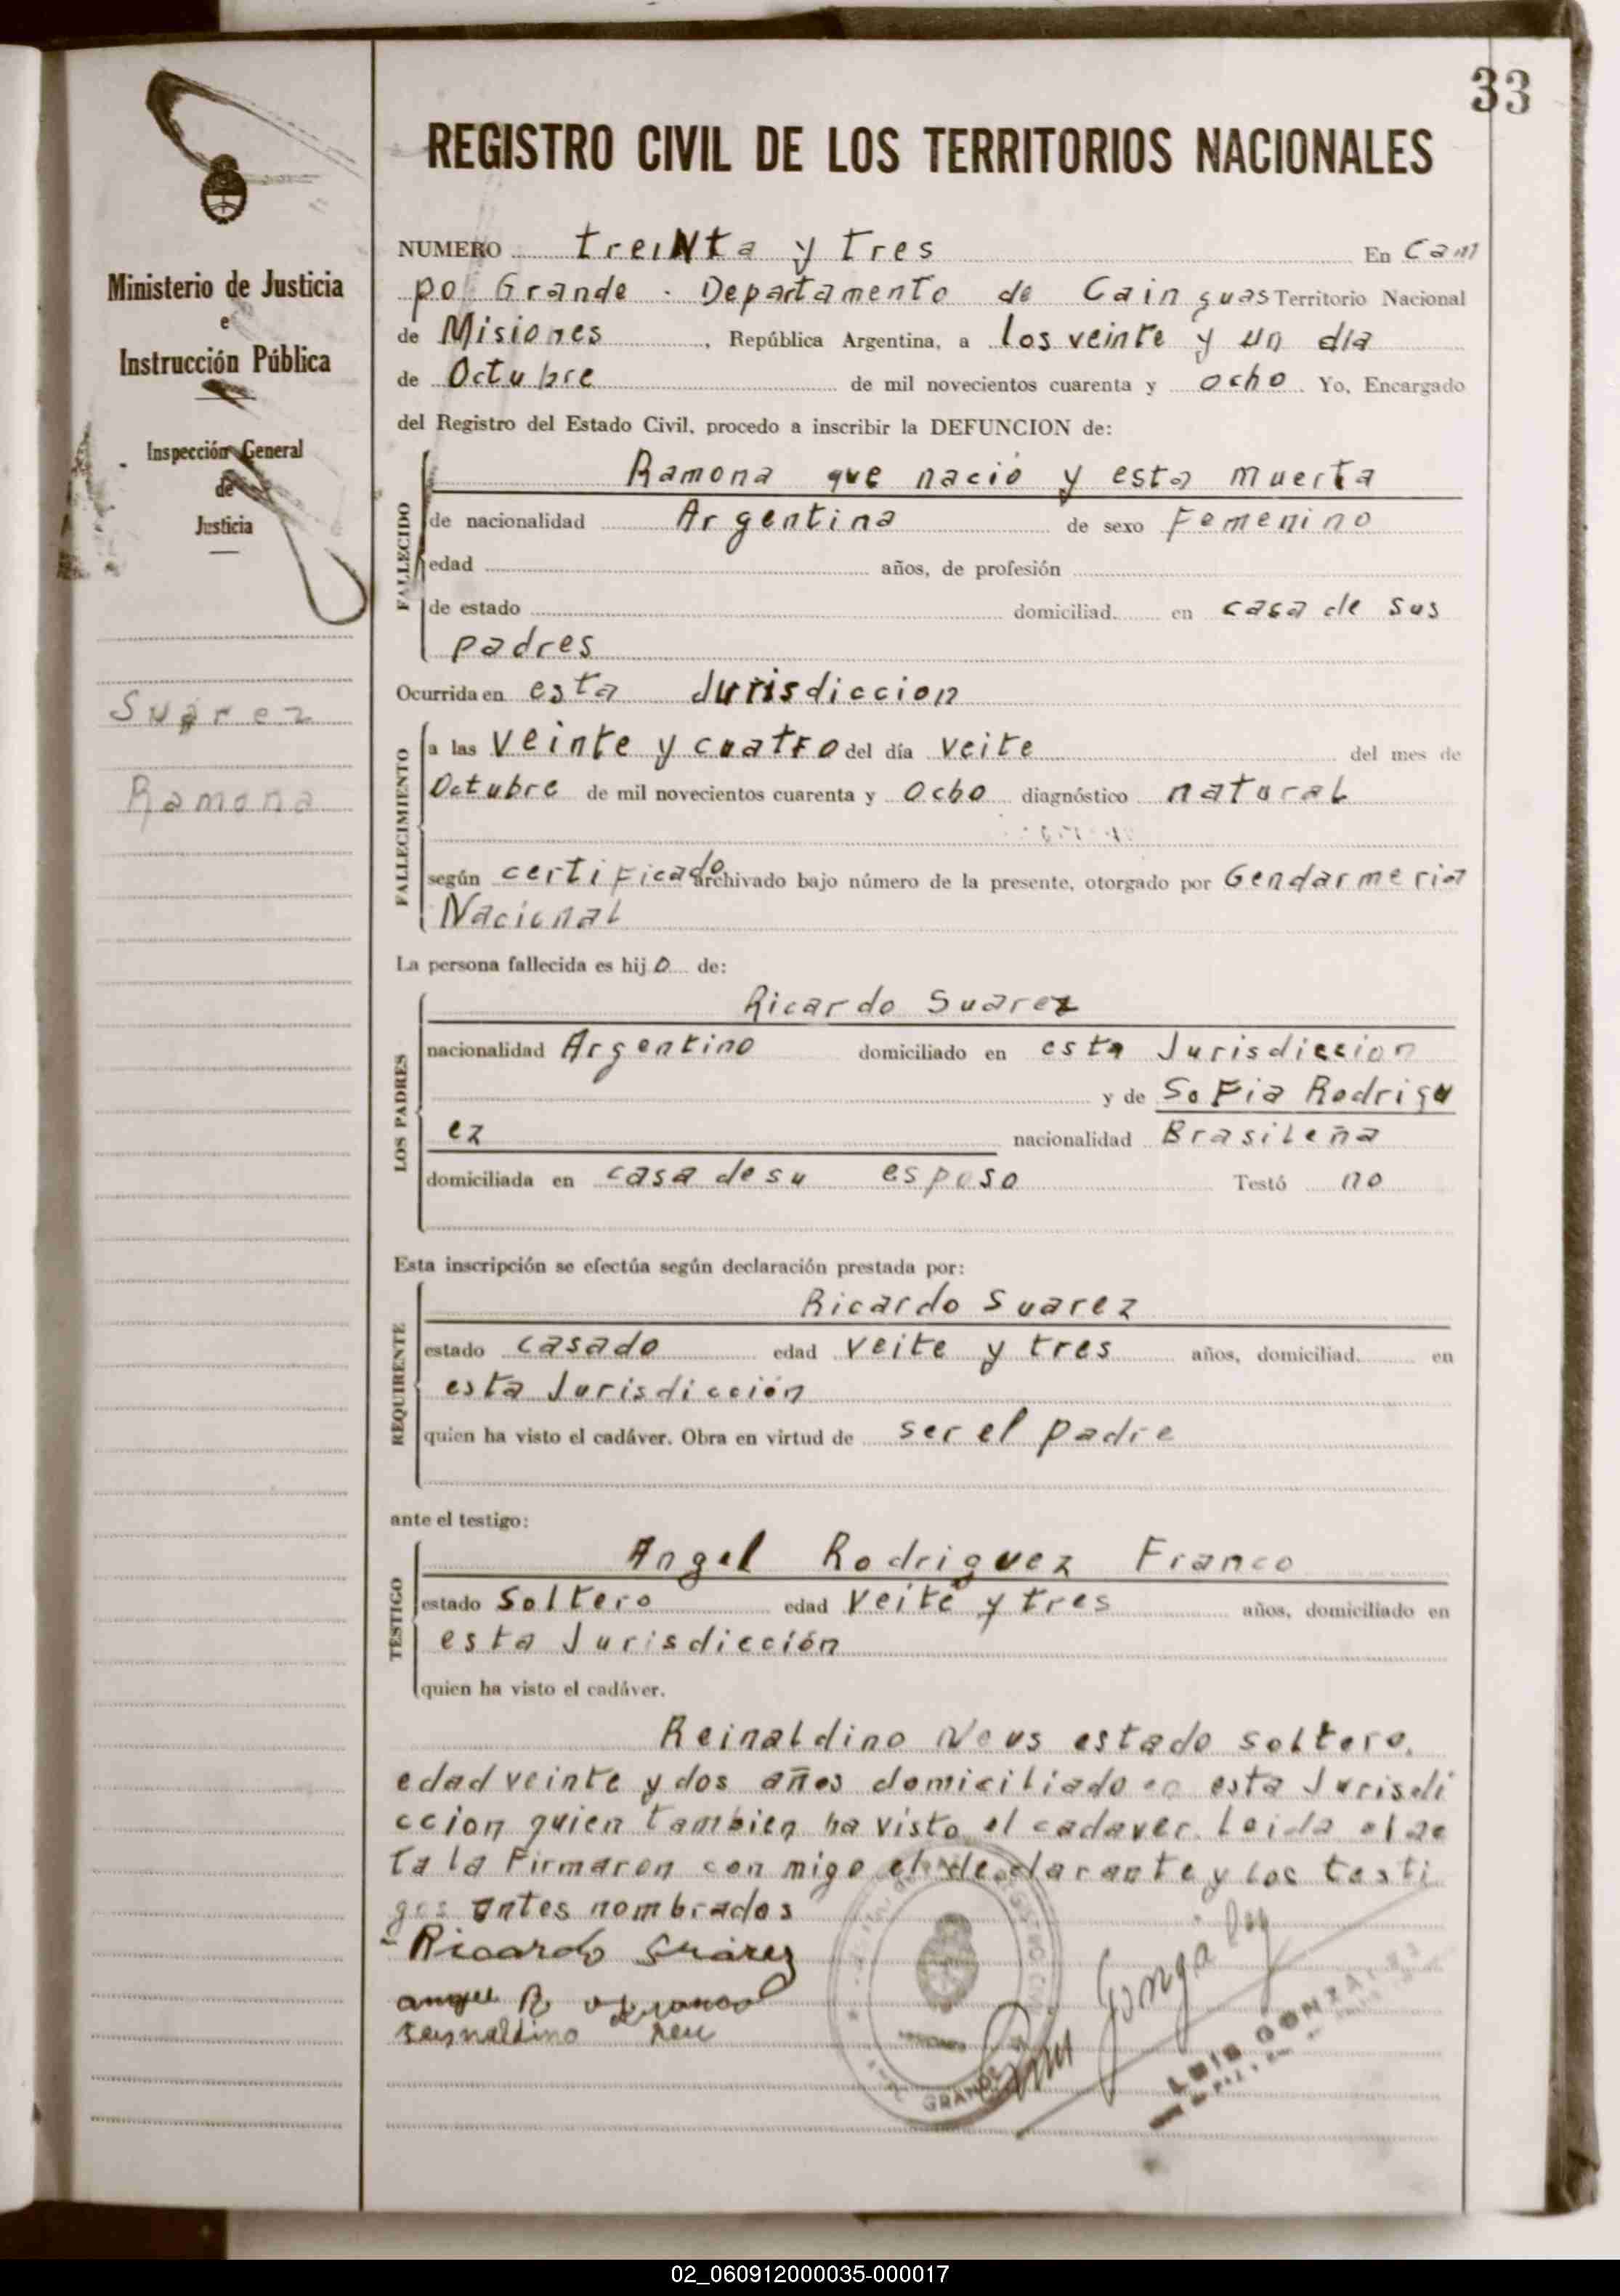 33
REGISTRO CIVIL DE LOS TERRITORIOS NACIONALES
Ministerio de Justicia
e
Instrucción Pública
Inspección General
de
Justicia
Suarez
Ramona
NUMERO treinta y tres En Cam
po Grande - Departamento de Cainguas Territorio Nacional
de Misiones, República Argentina, a los veinte y un dia
de Octubre de mil novecientos cuarenta y ocho. Yo, Encargado
del Registro del Estado Civil, procedo a inscribir la DEFUNCION de:
FALLECIDO
Ramona que nacio y esta muerta
de nacionalidad Argentina de sexo Femenino
edad años, de profesión
de estado domiciliad en casa de sus
padres
Ocurrida en esta Jurisdiccion
FALLECIMIENTO
a las veinte y cuatro del día veite del mes de
Octubre de mil novecientos cuarenta y ocho diagnóstico natural
según certificado archivado bajo número de la presente, otorgado por Gendarmeria
Nacional
La persona fallecida es hijo de:
LOS PADRES
Ricardo Suarez
nacionalidad Argentino domiciliado en esta Jurisdiccion
y de Sofia Rodrigu
ez nacionalidad Brasileña
domiciliada en casa de su esposo Testó no
Esta inscripción se efectúa según declaración prestada por:
REQUIRENTE
Ricardo Suarez
estado casado edad veite y tres años, domiciliad en
esta Jurisdicción
quien ha visto el cadáver. Obra en virtud de ser el padre
ante el testigo:
TESTIGO
Angel Rodriguez Franco
estado Soltero edad veite y tres años, domiciliado en
esta Jurisdicción
quien ha visto el cadáver.
Reinaldino Neus estado soltero,
edad veinte y dos años domiciliado en esta Jurisdi
ccion quien tambien ha visto el cadaver. Leida el ac
ta la Firmaron con migo el declarante y los testi
gos antes nombrados
Ricardo Suárez
GRANDE
LUIS GONZALEZ
02_060912000035-000017